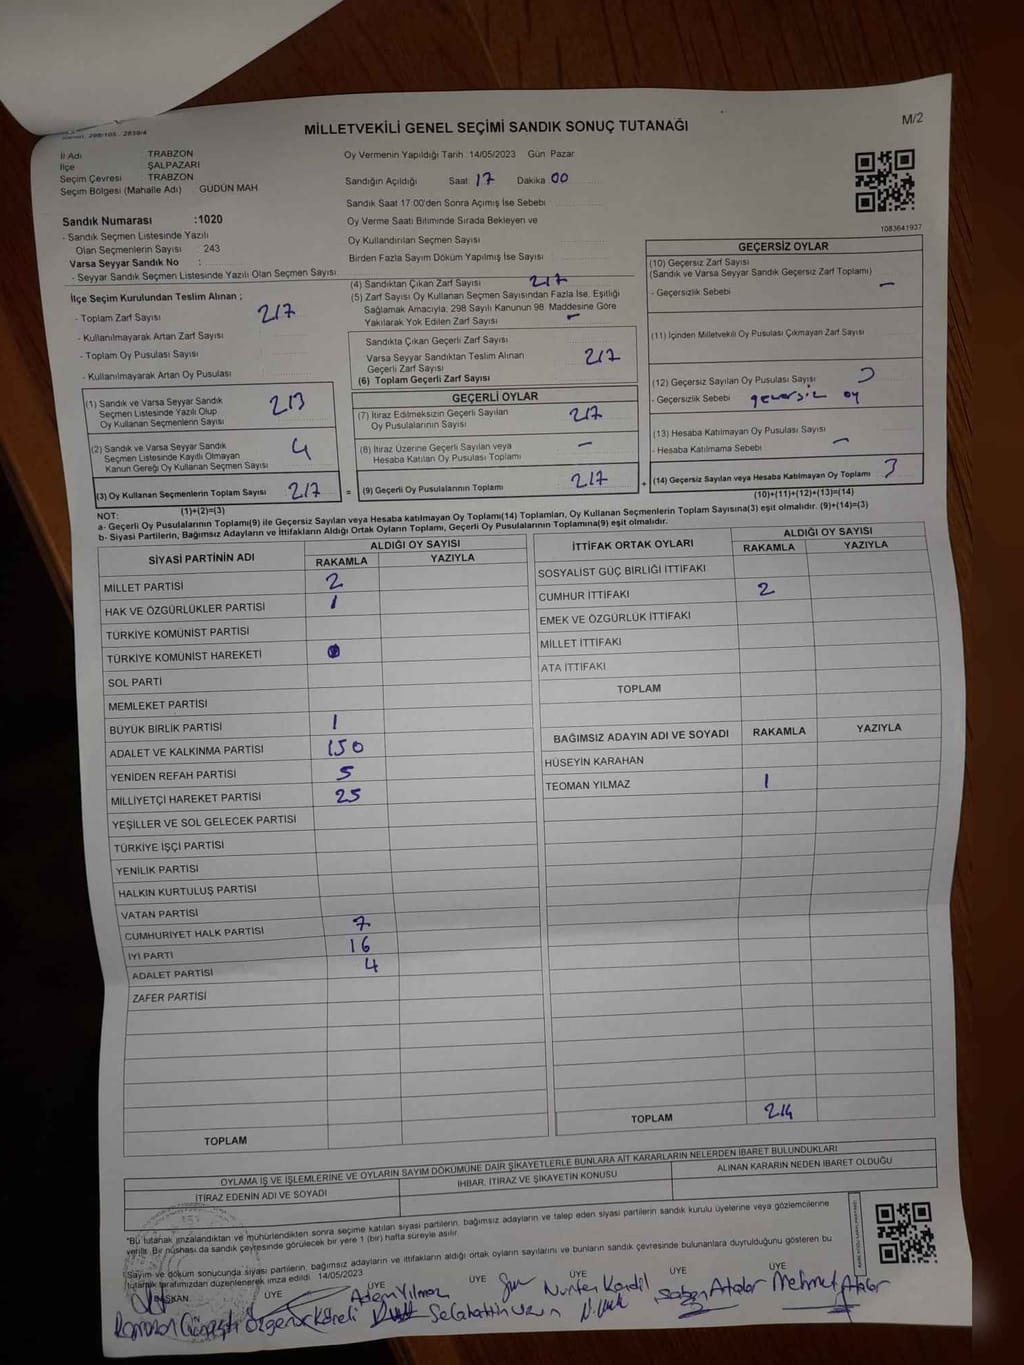 MİLLETVEKİLİ GENEL SEÇİMİ SANDIK SONUÇ TUTANAĞI
M/2
İl Adı : TRABZON
İlçe : ŞALPAZARI
Seçim Çevresi : TRABZON
Seçim Bölgesi (Mahalle Adı) GUDÜN MAH
Sandık Numarası :1020
- Sandık Seçmen Listesinde Yazılı
Olan Seçmenlerin Sayısı : 243
Varsa Seyyar Sandık No :
- Seyyar Sandık Seçmen Listesinde Yazılı Olan Seçmen Sayısı
Oy Vermenin Yapıldığı Tarih :14/05/2023 Gün Pazar
Sandığın Açıldığı Saat 17 Dakika 00
Sandık Saat 17.00'den Sonra Açımış İse Sebebi
Oy Verme Saati Bitiminde Sırada Bekleyen ve
Oy Kullandırılan Seçmen Sayısı
Birden Fazla Sayım Döküm Yapılmış İse Sayısı
1083641937
İlçe Seçim Kurulundan Teslim Alınan ;
- Toplam Zarf Sayısı 217
- Kullanılmayarak Artan Zarf Sayısı
- Toplam Oy Pusulası Sayısı
- Kullanılmayarak Artan Oy Pusulası
(1) Sandık ve Varsa Seyyar Sandık
Seçmen Listesinde Yazılı Olup
Oy Kullanan Seçmenlerin Sayısı 213
(2) Sandık ve Varsa Seyyar Sandık
Seçmen Listesinde Kayıtlı Olmayan
Kanun Gereği Oy Kullanan Seçmen Sayısı 4
(3) Oy Kullanan Seçmenlerin Toplam Sayısı 217
(1)+(2)=(3)
(4) Sandıktan Çıkan Zarf Sayısı 217
(5) Zarf Sayısı Oy Kullanan Seçmen Sayısından Fazla İse, Eşitliği
Sağlamak Amacıyla, 298 Sayılı Kanunun 98. Maddesine Göre
Yakılarak Yok Edilen Zarf Sayısı -
Sandıkta Çıkan Geçerli Zarf Sayısı
Varsa Seyyar Sandıktan Teslim Alınan
Geçerli Zarf Sayısı 217
(6) Toplam Geçerli Zarf Sayısı
GEÇERLİ OYLAR
(7) İtiraz Edilmeksizin Geçerli Sayılan
Oy Pusulalarının Sayısı 217
(8) İtiraz Üzerine Geçerli Sayılan veya
Hesaba Katılan Oy Pusulası Toplamı -
= (9) Geçerli Oy Pusulalarının Toplamı 217 +
GEÇERSİZ OYLAR
(10) Geçersiz Zarf Sayısı
(Sandık ve Varsa Seyyar Sandık Geçersiz Zarf Toplamı)
- Geçersizlik Sebebi -
(11) İçinden Milletvekili Oy Pusulası Çıkmayan Zarf Sayısı
(12) Geçersiz Sayılan Oy Pusulası Sayısı
- Geçersizlik Sebebi geçersiz oy
(13) Hesaba Katılmayan Oy Pusulası Sayısı
- Hesaba Katılmama Sebebi -
(14) Geçersiz Sayılan veya Hesaba Katılmayan Oy Toplamı 3
(10)+(11)+(12)+(13)=(14)
NOT:
a- Geçerli Oy Pusulalarının Toplamı(9) ile Geçersiz Sayılan veya Hesaba Katılmayan Oy Toplamı(14) Toplamları, Oy Kullanan Seçmenlerin Toplam Sayısına(3) eşit olmalıdır. (9)+(14)=(3)
b- Siyasi Partilerin, Bağımsız Adayların ve İttifakların Aldığı Ortak Oyların Toplamı, Geçerli Oy Pusulalarının Toplamına(9) eşit olmalıdır.
SİYASİ PARTİNİN ADI ALDIĞI OY SAYISI
RAKAMLA YAZIYLA
MİLLET PARTİSİ 2
HAK VE ÖZGÜRLÜKLER PARTİSİ 1
TÜRKİYE KOMÜNİST PARTİSİ
TÜRKİYE KOMÜNİST HAREKETİ
SOL PARTİ
MEMLEKET PARTİSİ
BÜYÜK BİRLİK PARTİSİ 1
ADALET VE KALKINMA PARTİSİ 150
YENİDEN REFAH PARTİSİ 5
MİLLİYETÇİ HAREKET PARTİSİ 25
YEŞİLLER VE SOL GELECEK PARTİSİ
TÜRKİYE İŞÇİ PARTİSİ
YENİLİK PARTİSİ
HALKIN KURTULUŞ PARTİSİ
VATAN PARTİSİ
CUMHURİYET HALK PARTİSİ 7
İYİ PARTİ 16
ADALET PARTİSİ 4
ZAFER PARTİSİ
TOPLAM
İTTİFAK ORTAK OYLARI ALDIĞI OY SAYISI
RAKAMLA YAZIYLA
SOSYALİST GÜÇ BİRLİĞİ İTTİFAKI
CUMHUR İTTİFAKI 2
EMEK VE ÖZGÜRLÜK İTTİFAKI
MİLLET İTTİFAKI
ATA İTTİFAKI
TOPLAM
BAĞIMSIZ ADAYIN ADI VE SOYADI RAKAMLA YAZIYLA
HÜSEYİN KARAHAN
TEOMAN YILMAZ 1
TOPLAM 214
OYLAMA İŞ VE İŞLEMLERİNE VE OYLARIN SAYIM DÖKÜMÜNE DAİR ŞİKAYETLERLE BUNLARA AİT KARARLARIN NELERDEN İBARET BULUNDUKLARI
İTİRAZ EDENİN ADI VE SOYADI İHBAR, İTİRAZ VE ŞİKAYETİN KONUSU ALINAN KARARIN NEDEN İBARET OLDUĞU
*Bu tutanak imzalandıktan ve mühürlendikten sonra seçime katılan siyasi partilerin, bağımsız adayların ve talep eden siyasi partilerin sandık kurulu üyelerine veya gözlemcilerine
verilir. Bir nüshası da sandık çevresinde görülecek bir yere 1 (bir) hafta süreyle asılır.
Sayım ve döküm sonucunda siyasi partilerin, bağımsız adayların ve ittifakların aldığı ortak oyların sayılarını ve bunların sandık çevresinde bulunanlara duyrulduğunu gösteren bu
tutanak tarafımızdan düzenlenerek imza edildi. 14/05/2023
BAŞKAN ÜYE ÜYE ÜYE ÜYE ÜYE ÜYE
Adem Yılmaz
Nurten Kandil
Selahattin Uzun
Mehmet Atalar